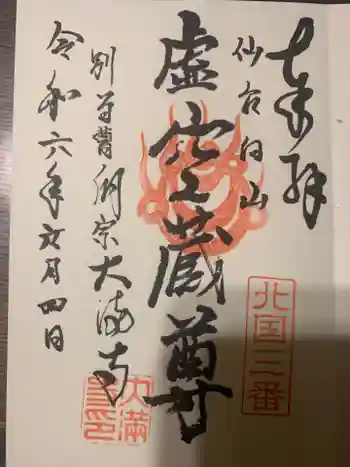 奉拝
仙台白山
北国三番
虚空蔵尊
別当曹洞宗大満寺
大満
令和六年六月四日